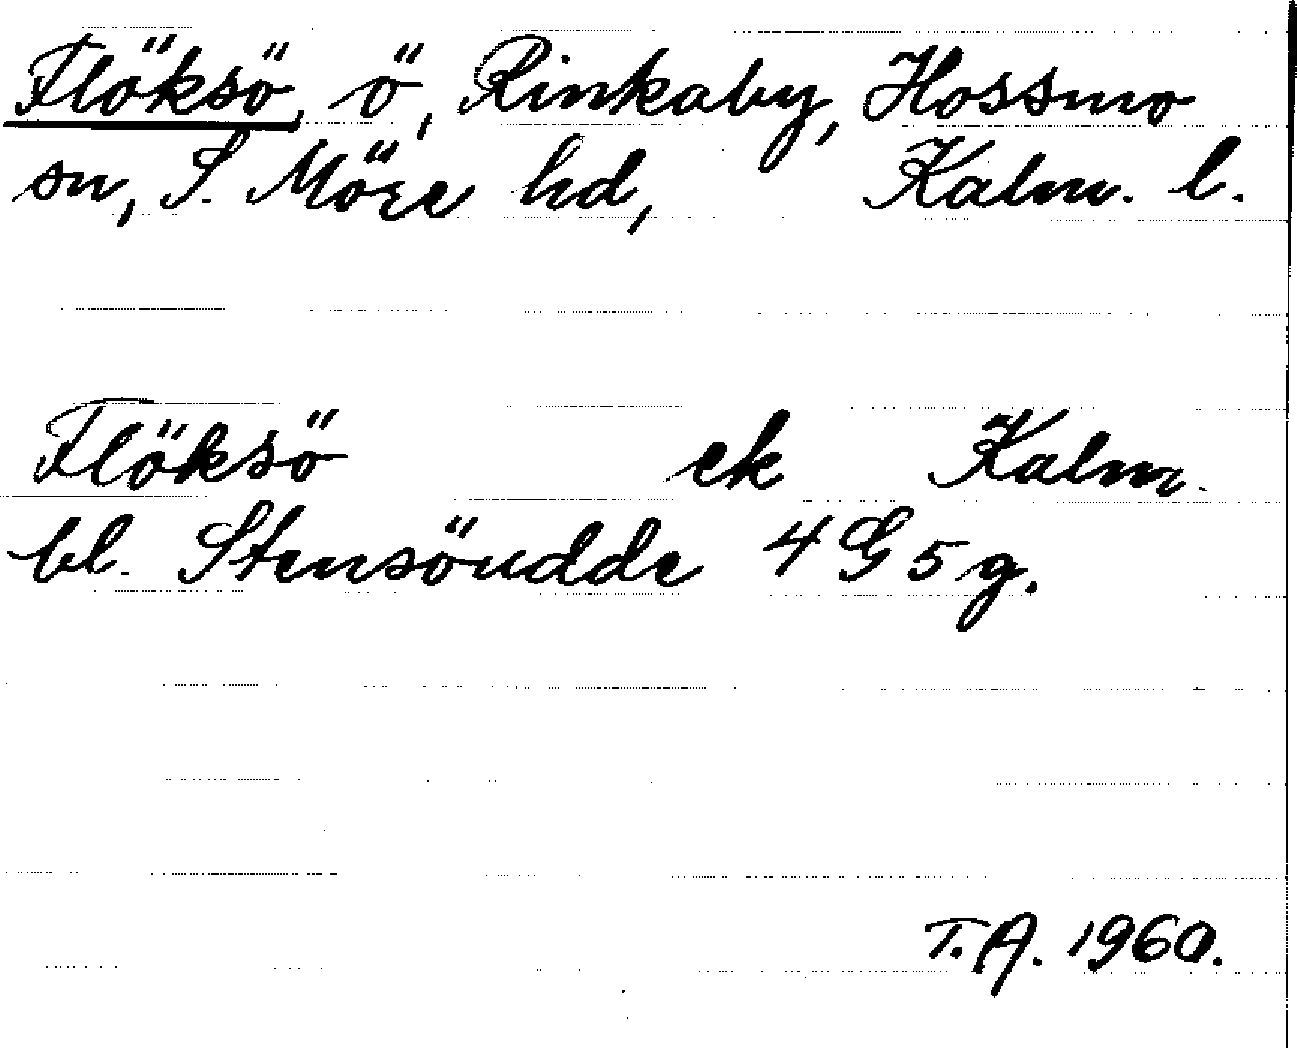 Flöksö, ö, Rinkaby, Hossmo
sn, S. Möre hd, Kalm. l.
Flöksö ek Kalm.
bl. Stensöudde 4 G 5 g.
T.A. 1960.